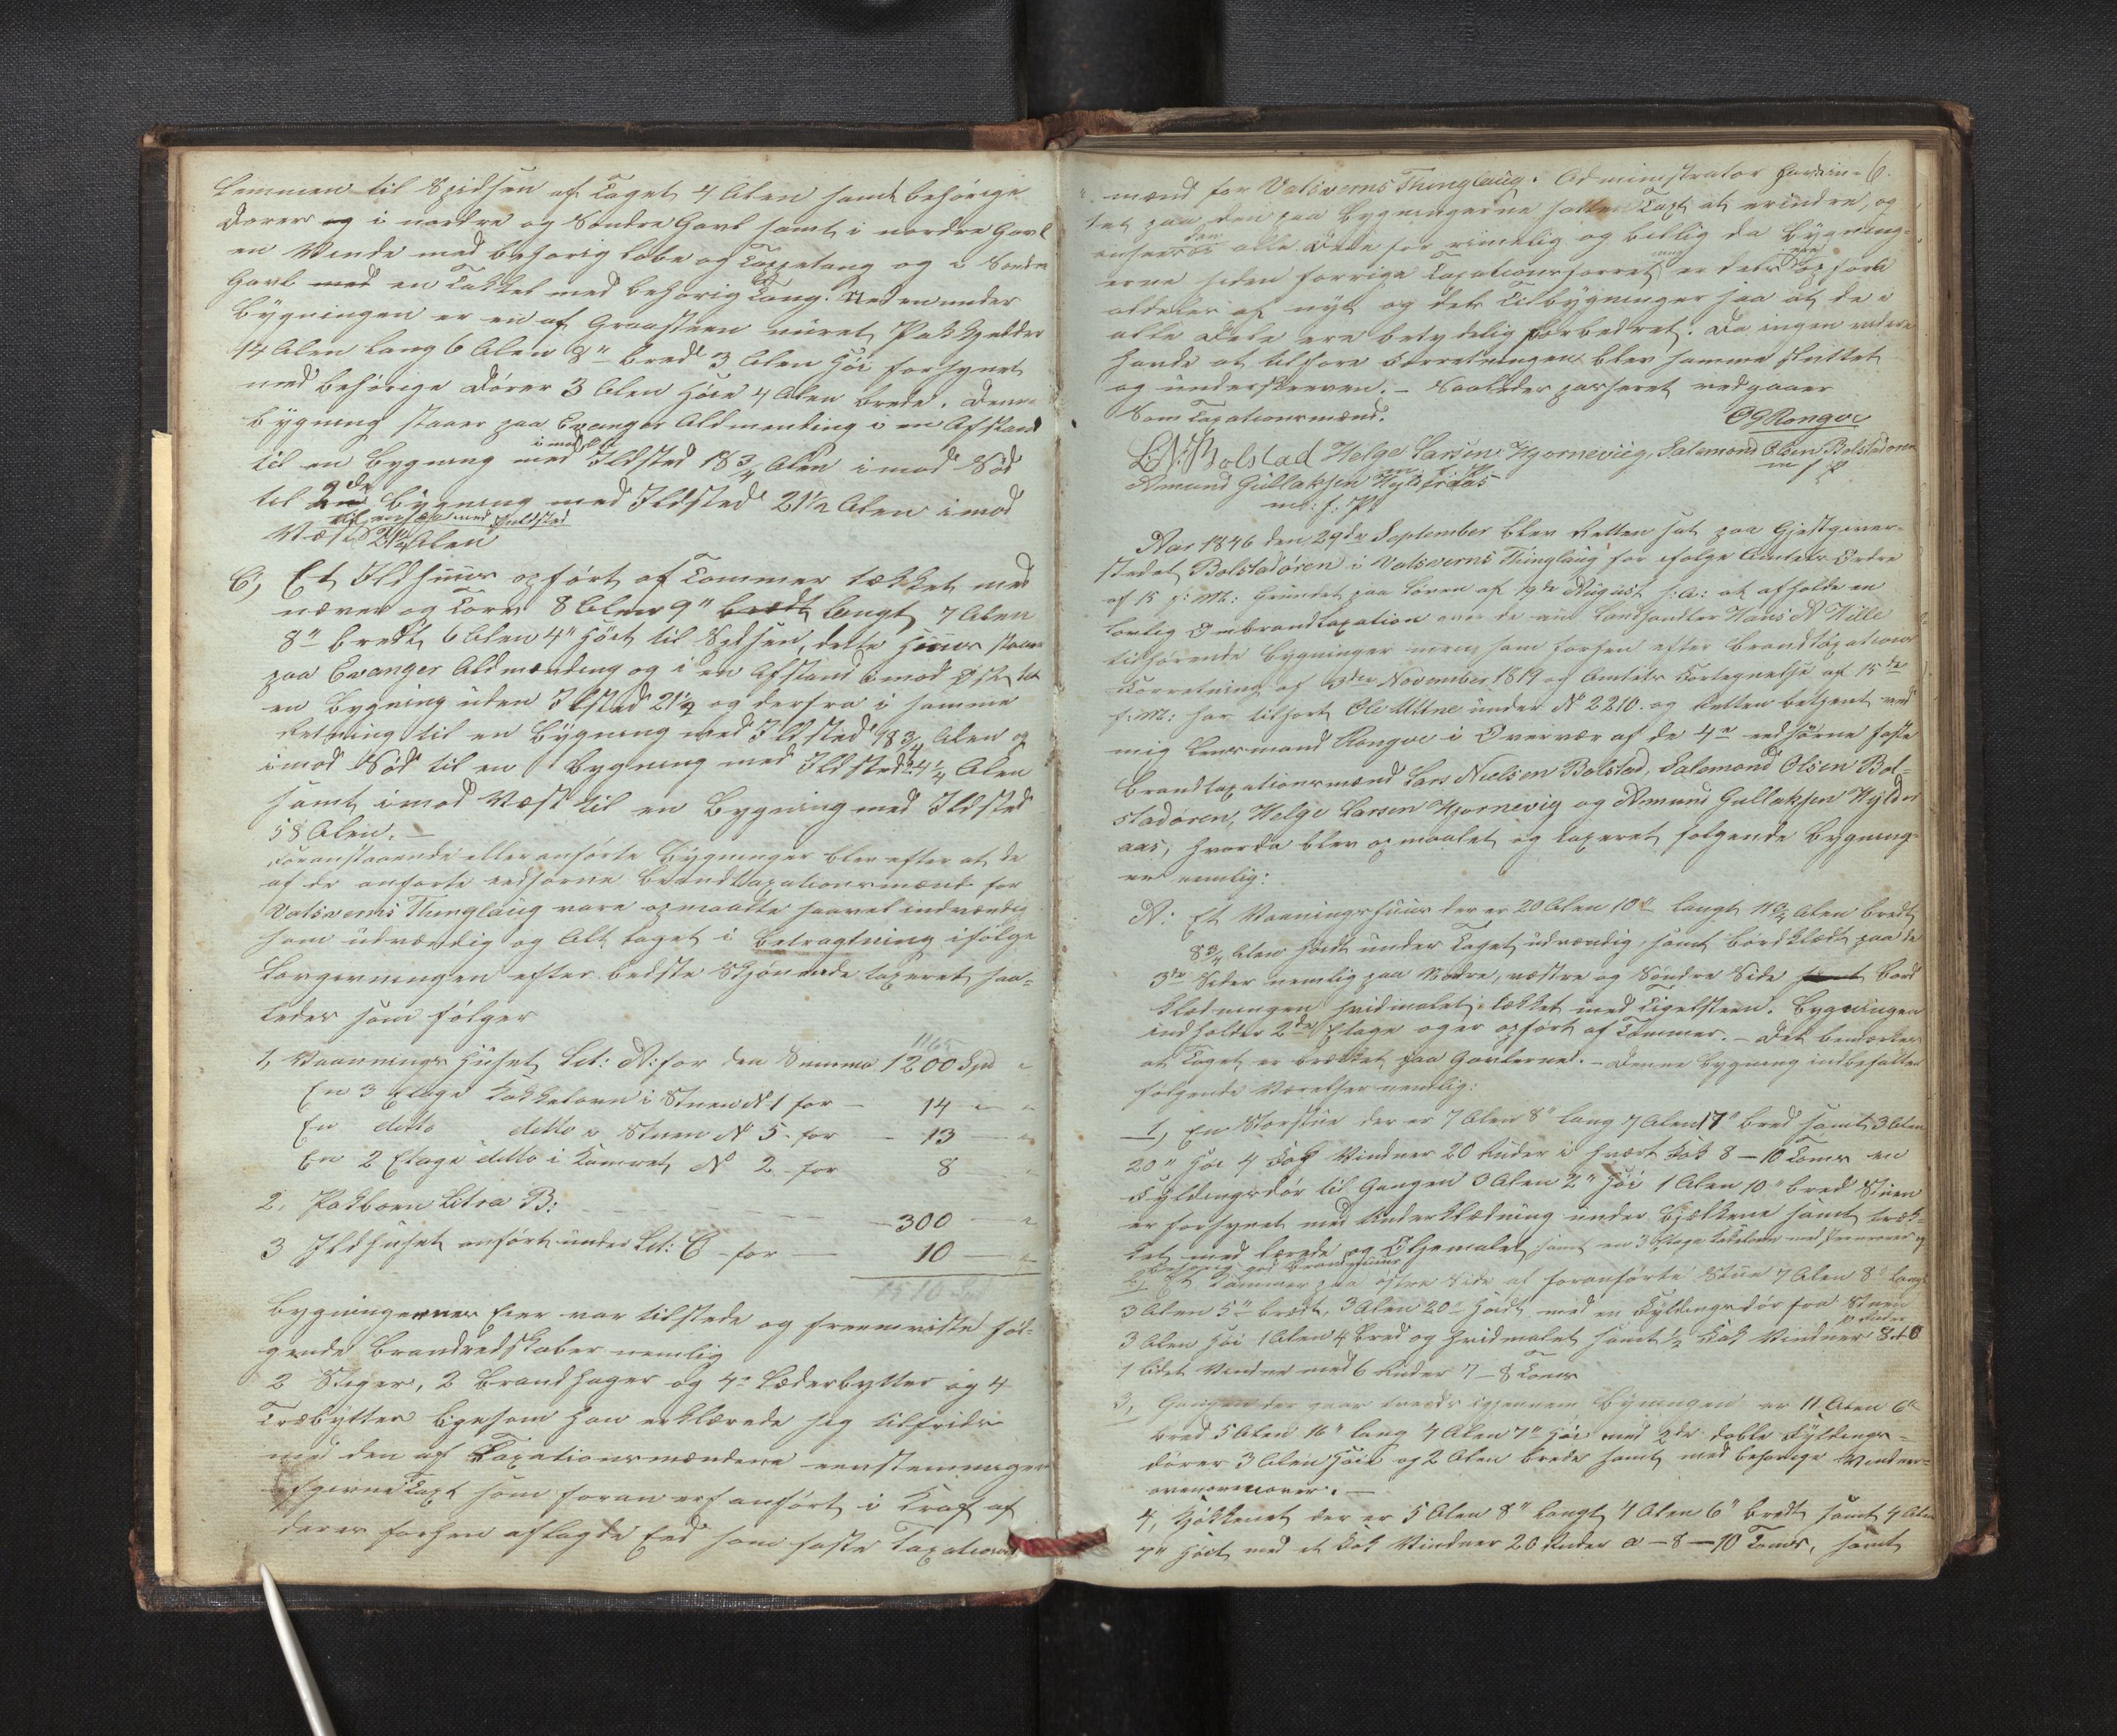 Lemmen til Spidsen af Taget 4 Alen samt behørige
Dører og i nordre og Søndre Gavl samt i nordre Gavl
en Vinde med behørig Lobe og Tang og i Søndre
Gavl med en Takkel med behørig Toug. Neden under
Bygningen er en af Graasteen muret Pakkjelder
14 Alen lang 6 Alen 8" bred 3 Alen høi forsynet
med behørige Dører 3 Alen høie 4 Alen brede. Denne
Bygning staaer paa Evanger Aldmending i en Afstand
til en Bygning med Ildsted 18¾ Alen imod Sød
til 2de Bygning med Ildsted 21½ Alen imod
Væst 21¼ Alen
C, Et Ildhuus opført af Tømmer tækket med
næver og Torv 8 Alen 9" bredt langt 7 Alen
8" bredt, 6 Alen 4" høit til Spidsen, dette Huus staaer
paa Evanger Aldmænding og i en Afstand imod Øst til
en Bygning uden Ildsted 21½ og derfra i samme
Retning til en Bygning med Ildsted 18¾ Alen og
imod Sød til en Bygning med Ildsted 24¼ Alen
samt imod Væst til en Bygning med Ildsted
58 Alen. —
Foranstaaende eller anførte Bygninger blev efter at de
af de anførte eedsorne Brandtaxationsmænd for
Vatsverns Thinglaug vare opmaalte saavel indvændig
som udvændig og Alt taget i betragtning ifølge
Lovgivningen efter bedste Skjønnende taxeret saa-
ledes som følger
1165
1, Vaanningshuset Lit: A: for den Summa 1200 Spd "
En 3 Etage Kakkelovn i Stuen N 1 for — 14 — "
En ditto ditto i Stuen N 5 for — 13 — "
En 2 Etage ditto i Kamret N 2 for 8 "
2, Pakboen Litra B: — 300 — "
3 Ildhuset anført under Lit: C for — 10 — "
1510 Spd
Bygningernes Eier var tilstede og fremviste føl-
gende Brandredskaber nemlig
2 Stiger, 2 Brandhager og 4 Læderbytter og 4
Træbytter ligesom han erklærede sig tilfreds
med den af Taxationsmændene eenstemmigen
afgivne Taxt som foran er anført i Kraft af
deres forhen aflagde Eed som faste Taxations
6.
mænd for Vatsverns Thinglaug. Administrator
tet paa den paa Bygningerne satte Taxt at erindre, og
ansees den i alle Dele for rimelig og billig da Bygning-
erne siden forrige Taxationsforretning er dels opført
aldeles af nyt og dels Tilbygninger saa at de i
alle Dele ere betydelig forbedret. Da ingen videre
havde at tilføre Forretningen blev samme sluttet
og underskreven. — Saaledes passeret vedgaaer
Som Taxationsmænd. OG Rongve
L N Bolstad Helge Larsen Hjornevieg, Salemond Olsen Bolstadøren
m f P m f P
Amund Gullaksen Hylderaas
m: f: P:
Aar 1846 den 29de September blev Retten sat paa Gjestgiver-
stedet Bolstadøren i Vatsverns Thinglaug for ifølge Amtets Ordre
af 15 f: M: grundet paa Loven af 19de August f: A: at afholde en
lovlig Ombrandtaxation over de nu Landhandler Hans N Wille
tilhørende Bygninger men som forhen efter Brandtaxations
Forretning af 3die November 1819 og Amtets Fortegnelse af 15de
f: M: har tilhørt Ole Uttne under N 2210. og Retten betjent ved
mig Lensmand Rongve i Overvær af de 4re eedsorne faste
Brandtaxationsmænd Lars Nielsen Bolstad, Salemond Olsen Bol-
stadøren, Helge Larsen Hjornevig og Amund Gullaksen Hylder
aas, hvorda blev opmaalet og taxeret følgende Bygning-
er nemlig:
A: Et Vaaningshuus der er 20 Alen 10" langt 11¾ Alen bredt
8¾ Alen høidt under Taget udvændig, samt bordklædt paa de
3de Sider nemlig paa Nordre, væstre og Søndre Side samt Bord
klædningen hvidmalet, tækket med Tigelsteen. Bygningen
indholder 2de Etage og er opført af Tømmer. — Det bemærkes
at Taget er brækket paa Gavlerne. — Denne Bygning indbefatter
følgende Værelser nemlig:
1, En Storstue der er 7 Alen 8" lang 7 Alen 17" bred samt 3 Alen
20" høi 4 Fag Vinduer 20 Ruder i hvært Fak 8 — 10 Toms en
Fyldingsdør til Gangen 3 Alen 2" høi 1 Alen 10" bred Stuen
er forsynet med Underklædning under Bjelkerne samt træk-
ket med Lærede og Oljemalet samt en 3 Etage Kakelovn med Jernrør og
behørig god Brandmuur
2, Et Kammer paa østre Side af foranførte Stue 7 Alen 8" langt
3 Alen 5" bredt, 3 Alen 20" høidt med en Fyldingsdør fra Stuen
3 Alen høi 1 Alen 4 bred og hvidmalet samt ½ Fak Vinduer 8 10
1 lidet Vindue med 6 Ruder 7 — 8 Toms
3, Gangen der gaar tværds igjennem Bygningen er 11 Alen 6"
bred 5 Alen 16" lang 4 Alen 7" høi med 2de doble Fyldings-
dører 3 Alen høie og 2 Alen brede samt med behørige Vinduer
ovenover. —
4, Kjøkkenet der er 5 Alen 8" langt 4 Alen 6" bredt samt 4 Alen
7" høit med et Fak Vinduer 20 Ruder a — 8 — 10 Toms, samt